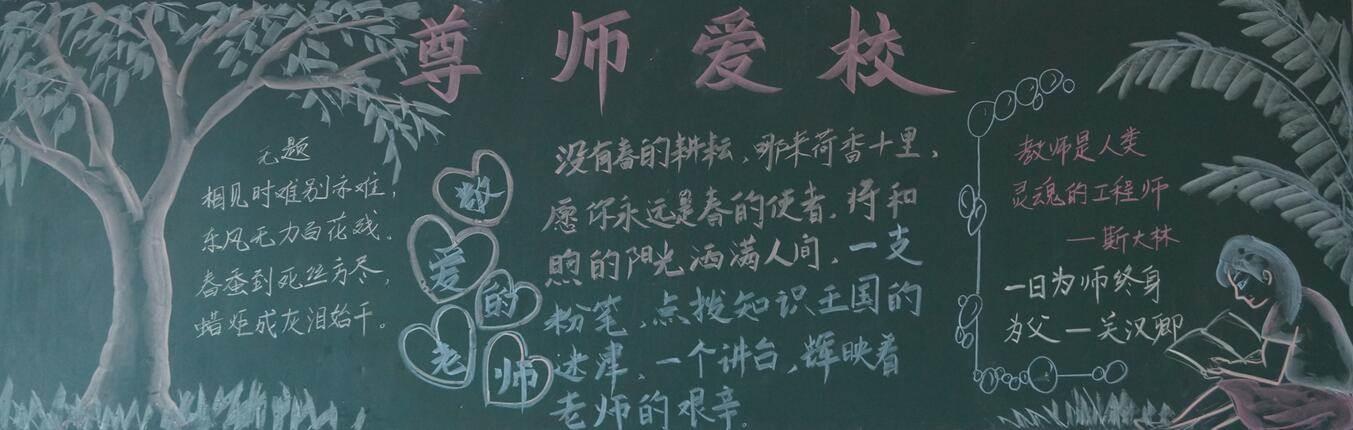 尊师爱校
无题
相见时难别亦难，
东风无力百花残。
春蚕到死丝方尽，
蜡炬成灰泪始干。
敬
爱
的
老
师
没有春的耕耘，哪来荷香十里，
愿你永远是春的使者，将和
煦的阳光洒满人间，一支
粉笔，点拨知识王国的
迷津，一个讲台，辉映着
老师的艰辛。
教师是人类
灵魂的工程师
—斯大林
一日为师终身
为父—关汉卿